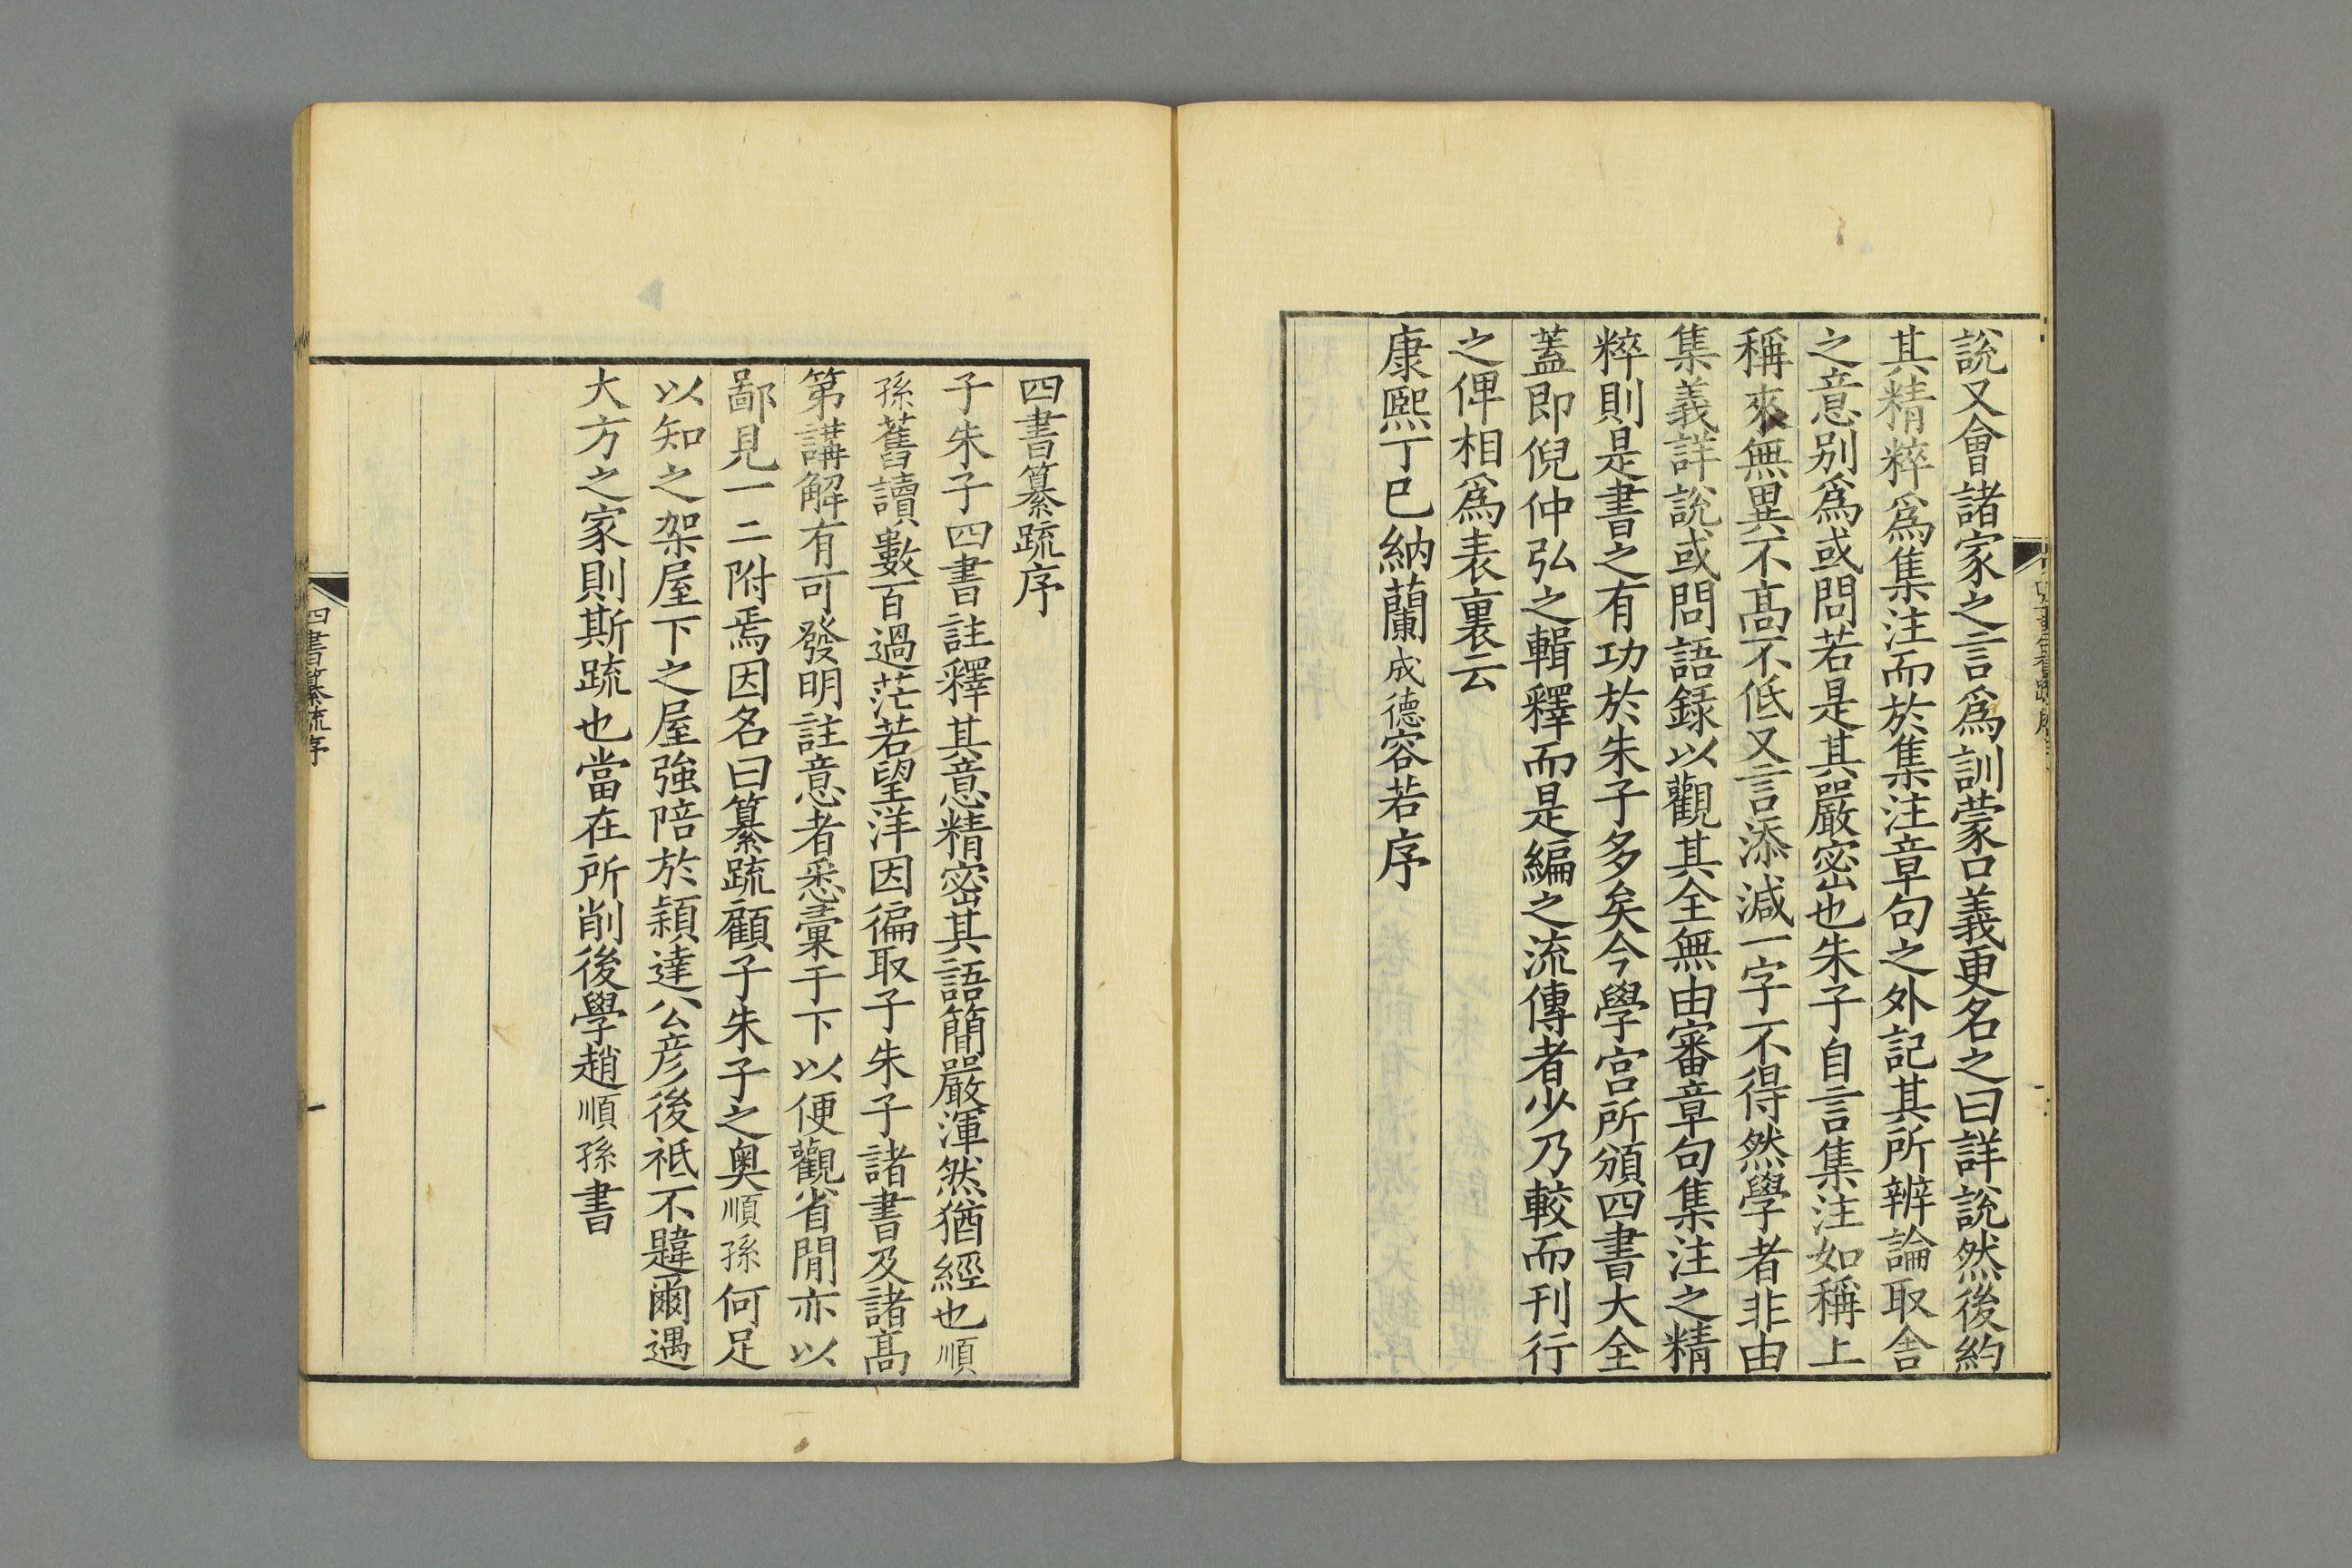 說又會諸家之言爲訓蒙口義更名之曰詳說然後約
其精粹爲集注而於集注章句之外記其所辨論取舍
之意别爲或問若是其嚴密也朱子自言集注如稱上
稱來無異不髙不低又言添減一字不得然學者非由
集義詳說或問語録以觀其全無由審章句集注之精
粹則是書之有功於朱子多矣今學宫所頒四書大全
蓋即倪仲弘之輯釋而是編之流傳者少乃較而刊行
之俾相爲表裏云
康熙丁巳納蘭成德容若序
四書纂疏序
子朱子四書註釋其意精密其語簡嚴渾然猶經也順
孫舊讀數百過茫若望洋因徧取子朱子諸書及諸髙
第講解有可發明註意者悉彚于下以便觀省閒亦以
鄙見一二附焉因名曰纂疏顧子朱子之奥順孫何足
以知之架屋下之屋強陪於穎達公彦後祗不韙爾遇
大方之家則斯疏也當在所削後學趙順孫書
四書纂疏序
一